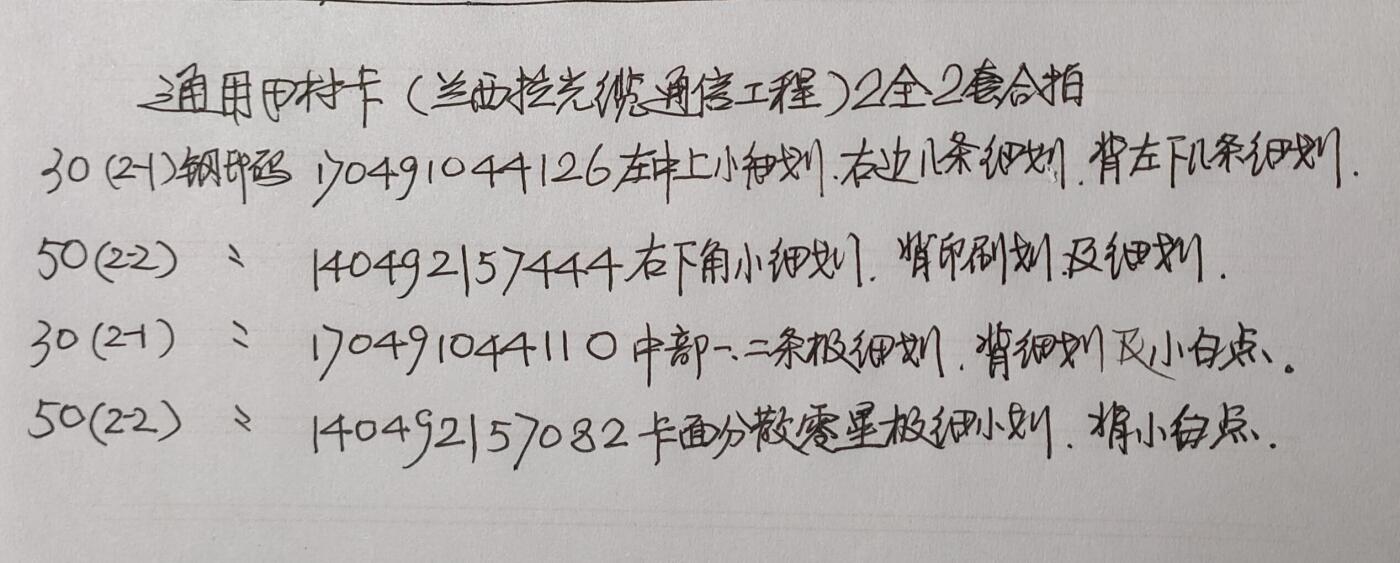 通用田村卡（兰西拉光缆通信工程）2全2套合拍
30(2-1)钢印码 170491044126左中上小细划.右边几条细划.背左下几条细划.
50(2-2) 〃 140492157444右下角小细划.背印刷划及细划.
30(2-1) 〃 170491044110中部一、二条极细划.背细划及小白点。
50(2-2) 〃 140492157082卡面分散零星极细小划.背小白点.